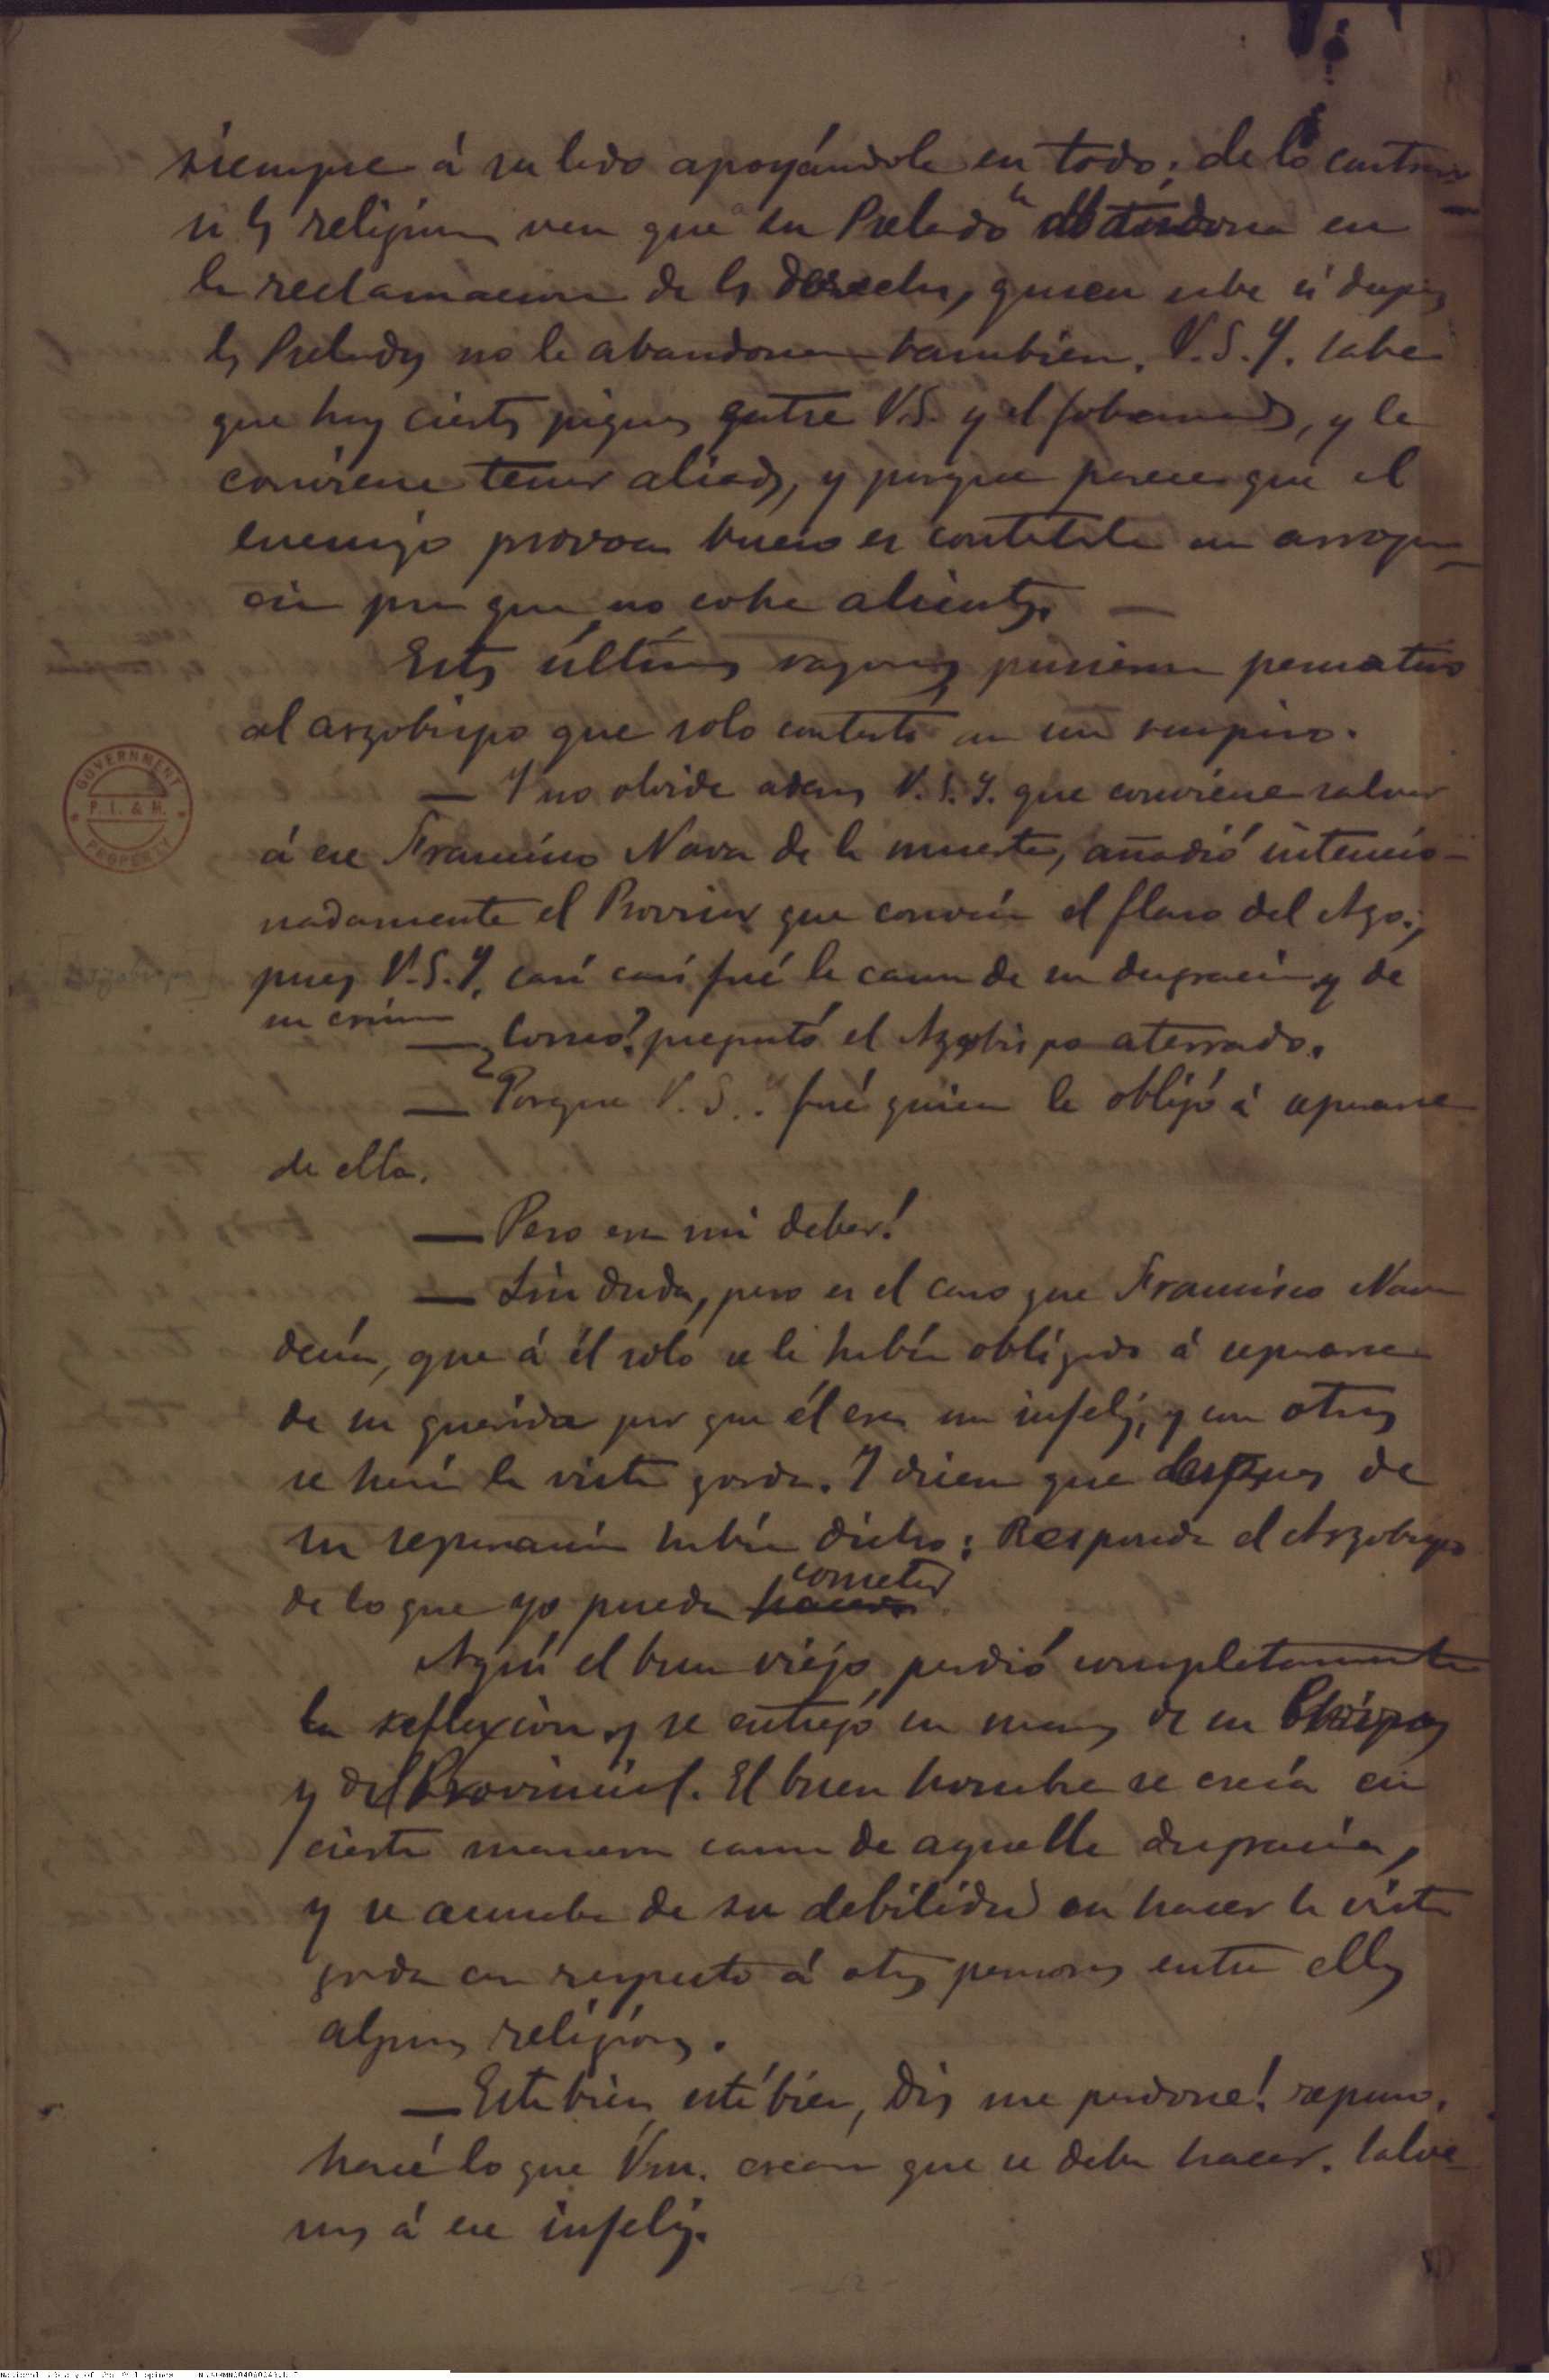 siempre á su lado apoyándole en todo; de lo contrario
si los religiosos ven que su Prelado los abandona en
la reclamacion de los derechos, quien sabe si despues
los Prelados no le abandonen tambien. V.S.Y. sabe
que hay ciertos piques entre V.S. y el Gobernador, y le
conviene tener aliados, y porque parece que el
enemigo provoca bueno es contestarle con arrogan-
cia para que no cobre alientos. —
Estas últimas razones pusieron pensativo
al arzobispo que solo contestó con un suspiro.
— Y no olvide ademas V.S.Y. que conviene salvar
á ese Francisco Nava de la muerte, añadió intencio-
nadamente el Provincial que conocía el flaco del Azo.;
pues V.S.Y. casi casi fué la causa de su desgracia y de
su crimen
— ¿Como? preguntó el Azobispo aterrado.
— Porque V.S.Y. fué quien le obligó á separarse
de ella.
— Pero era mi deber!
— Sin duda, pero es el caso que Francisco Nava
decía, que á él solo se le había obligado á separarse
de su querida por que él era un infeliz, y con otros
se hacía la vista gorda. Y dicen que despues de
su separacion había dicho: Responda el Arzobispo
de lo que yo pueda cometer
Aquí el buen viejo, perdió completamente
la reflexion y se entregó en manos de su Obispos
y del Provincial. El buen hombre se creía en
cierta manera causa de aquella desgracia,
y se acusaba de su debilidad en hacer la vista
gorda con respecto á otras personas entre ellos
algunos religiosos.
— Está bien, está bien, Dios me perdone! repuso,
haré lo que Vms. crean que se debe hacer. Salve-
mos á ese infeliz.
GOVERNMENT
P. L. & M.
PROPERTY